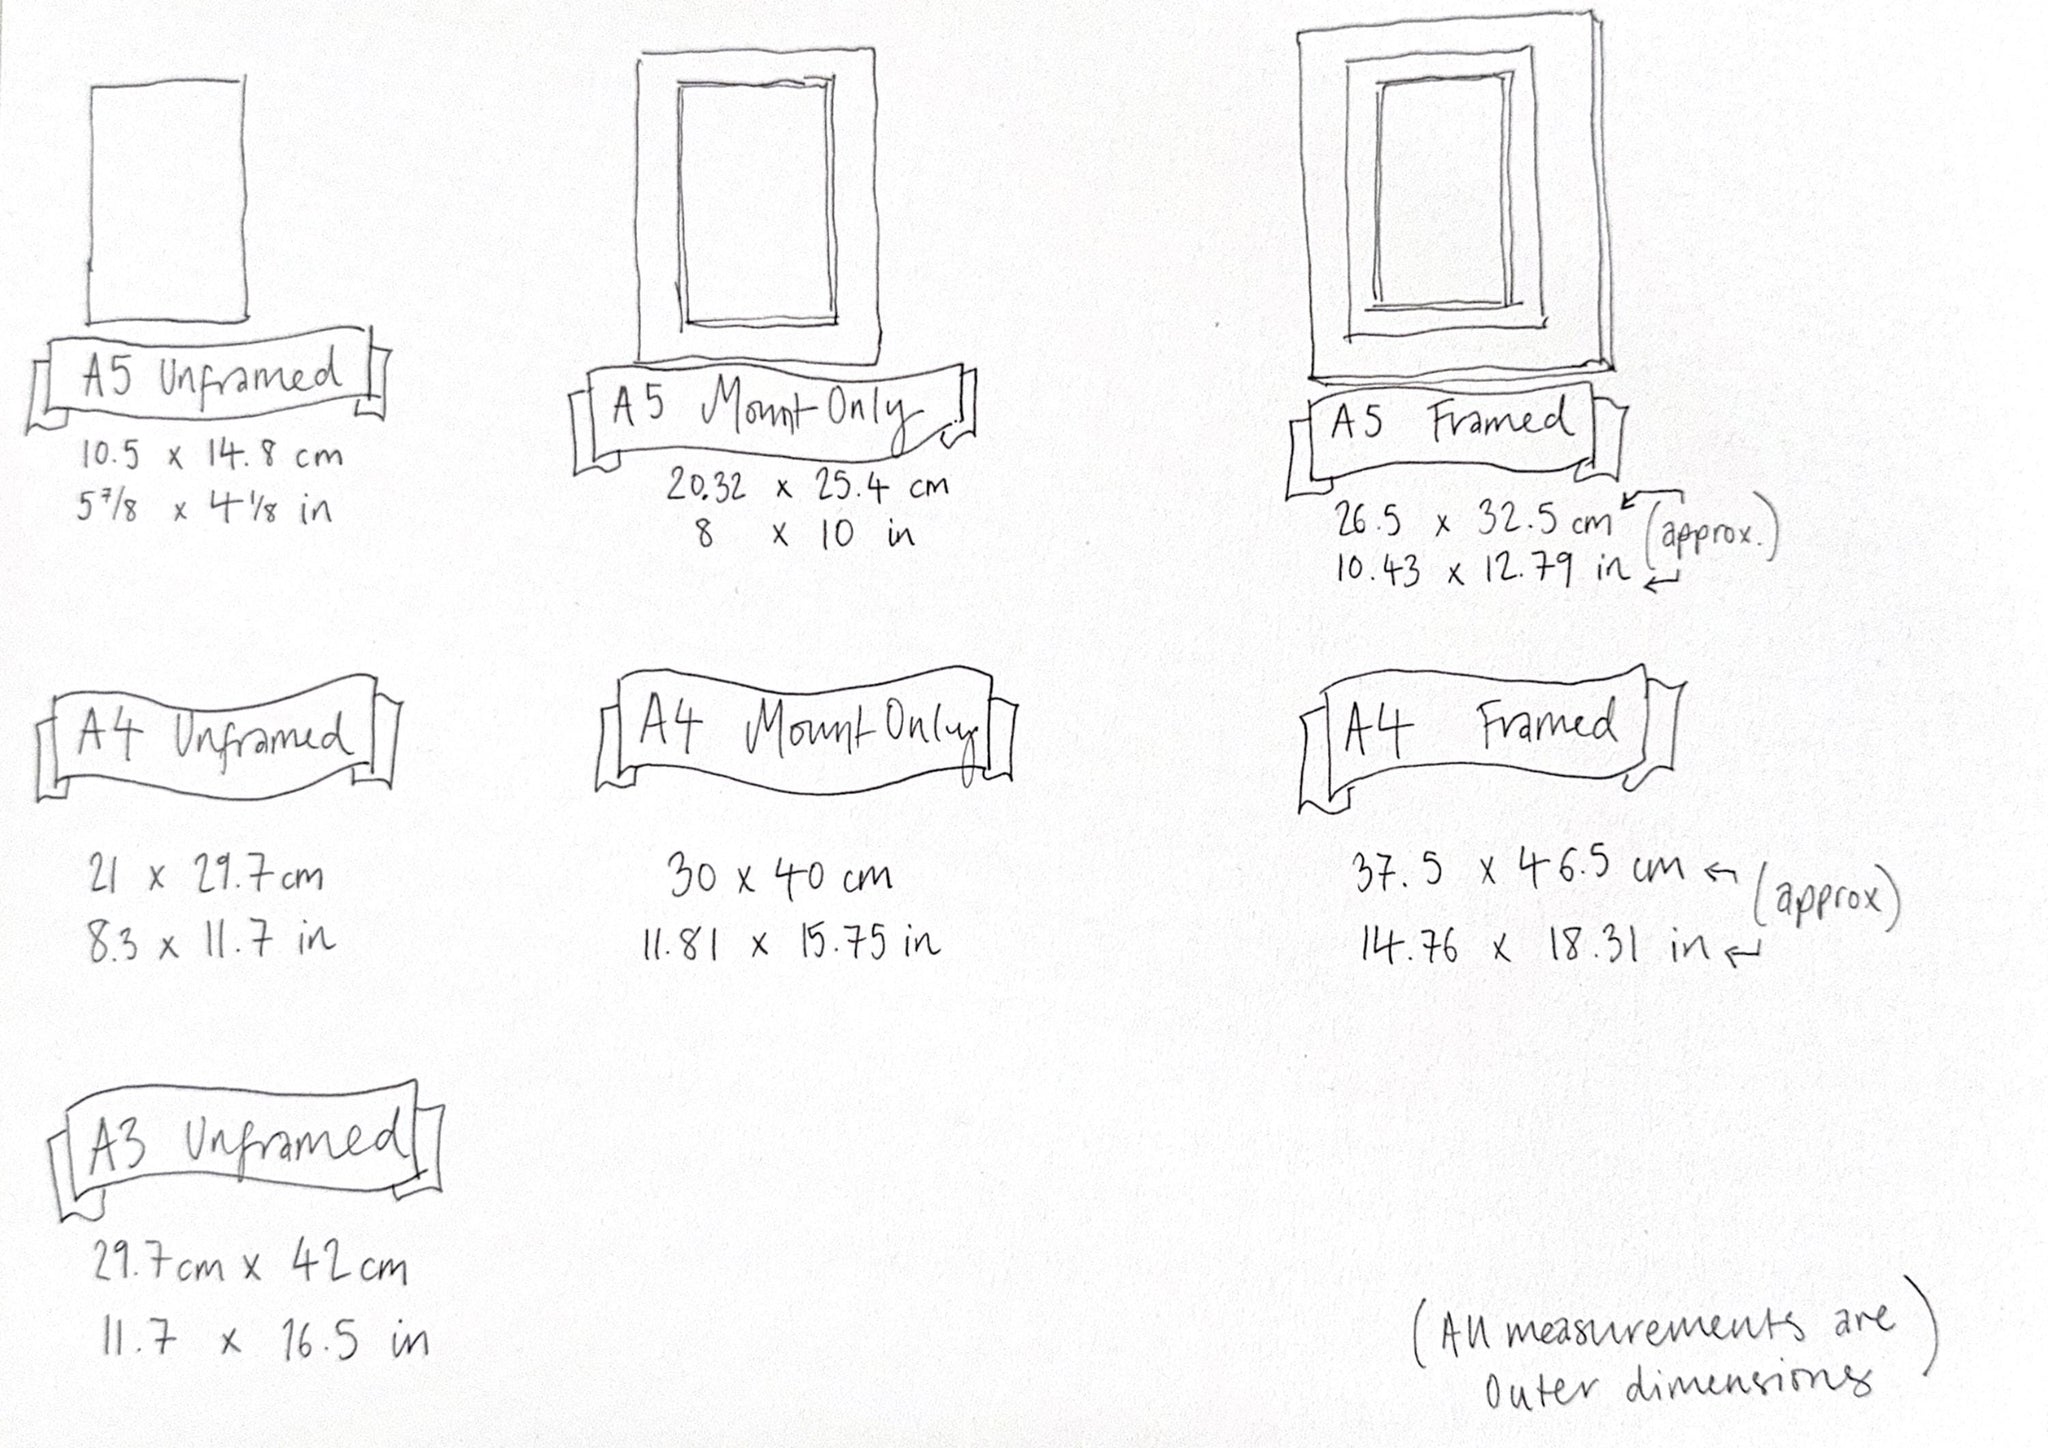 A5 Unframed
10.5 x 14.8 cm
5 7/8 x 4 1/8 in
A5 Mount Only
20.32 x 25.4 cm
8 x 10 in
A5 Framed
26.5 x 32.5 cm
10.43 x 12.79 in
(approx.)
A4 Unframed
21 x 29.7 cm
8.3 x 11.7 in
A4 Mount Only
30 x 40 cm
11.81 x 15.75 in
A4 Framed
37.5 x 46.5 cm
14.76 x 18.31 in
(approx)
A3 Unframed
29.7cm x 42cm
11.7 x 16.5 in
(All measurements are
Outer dimensions)